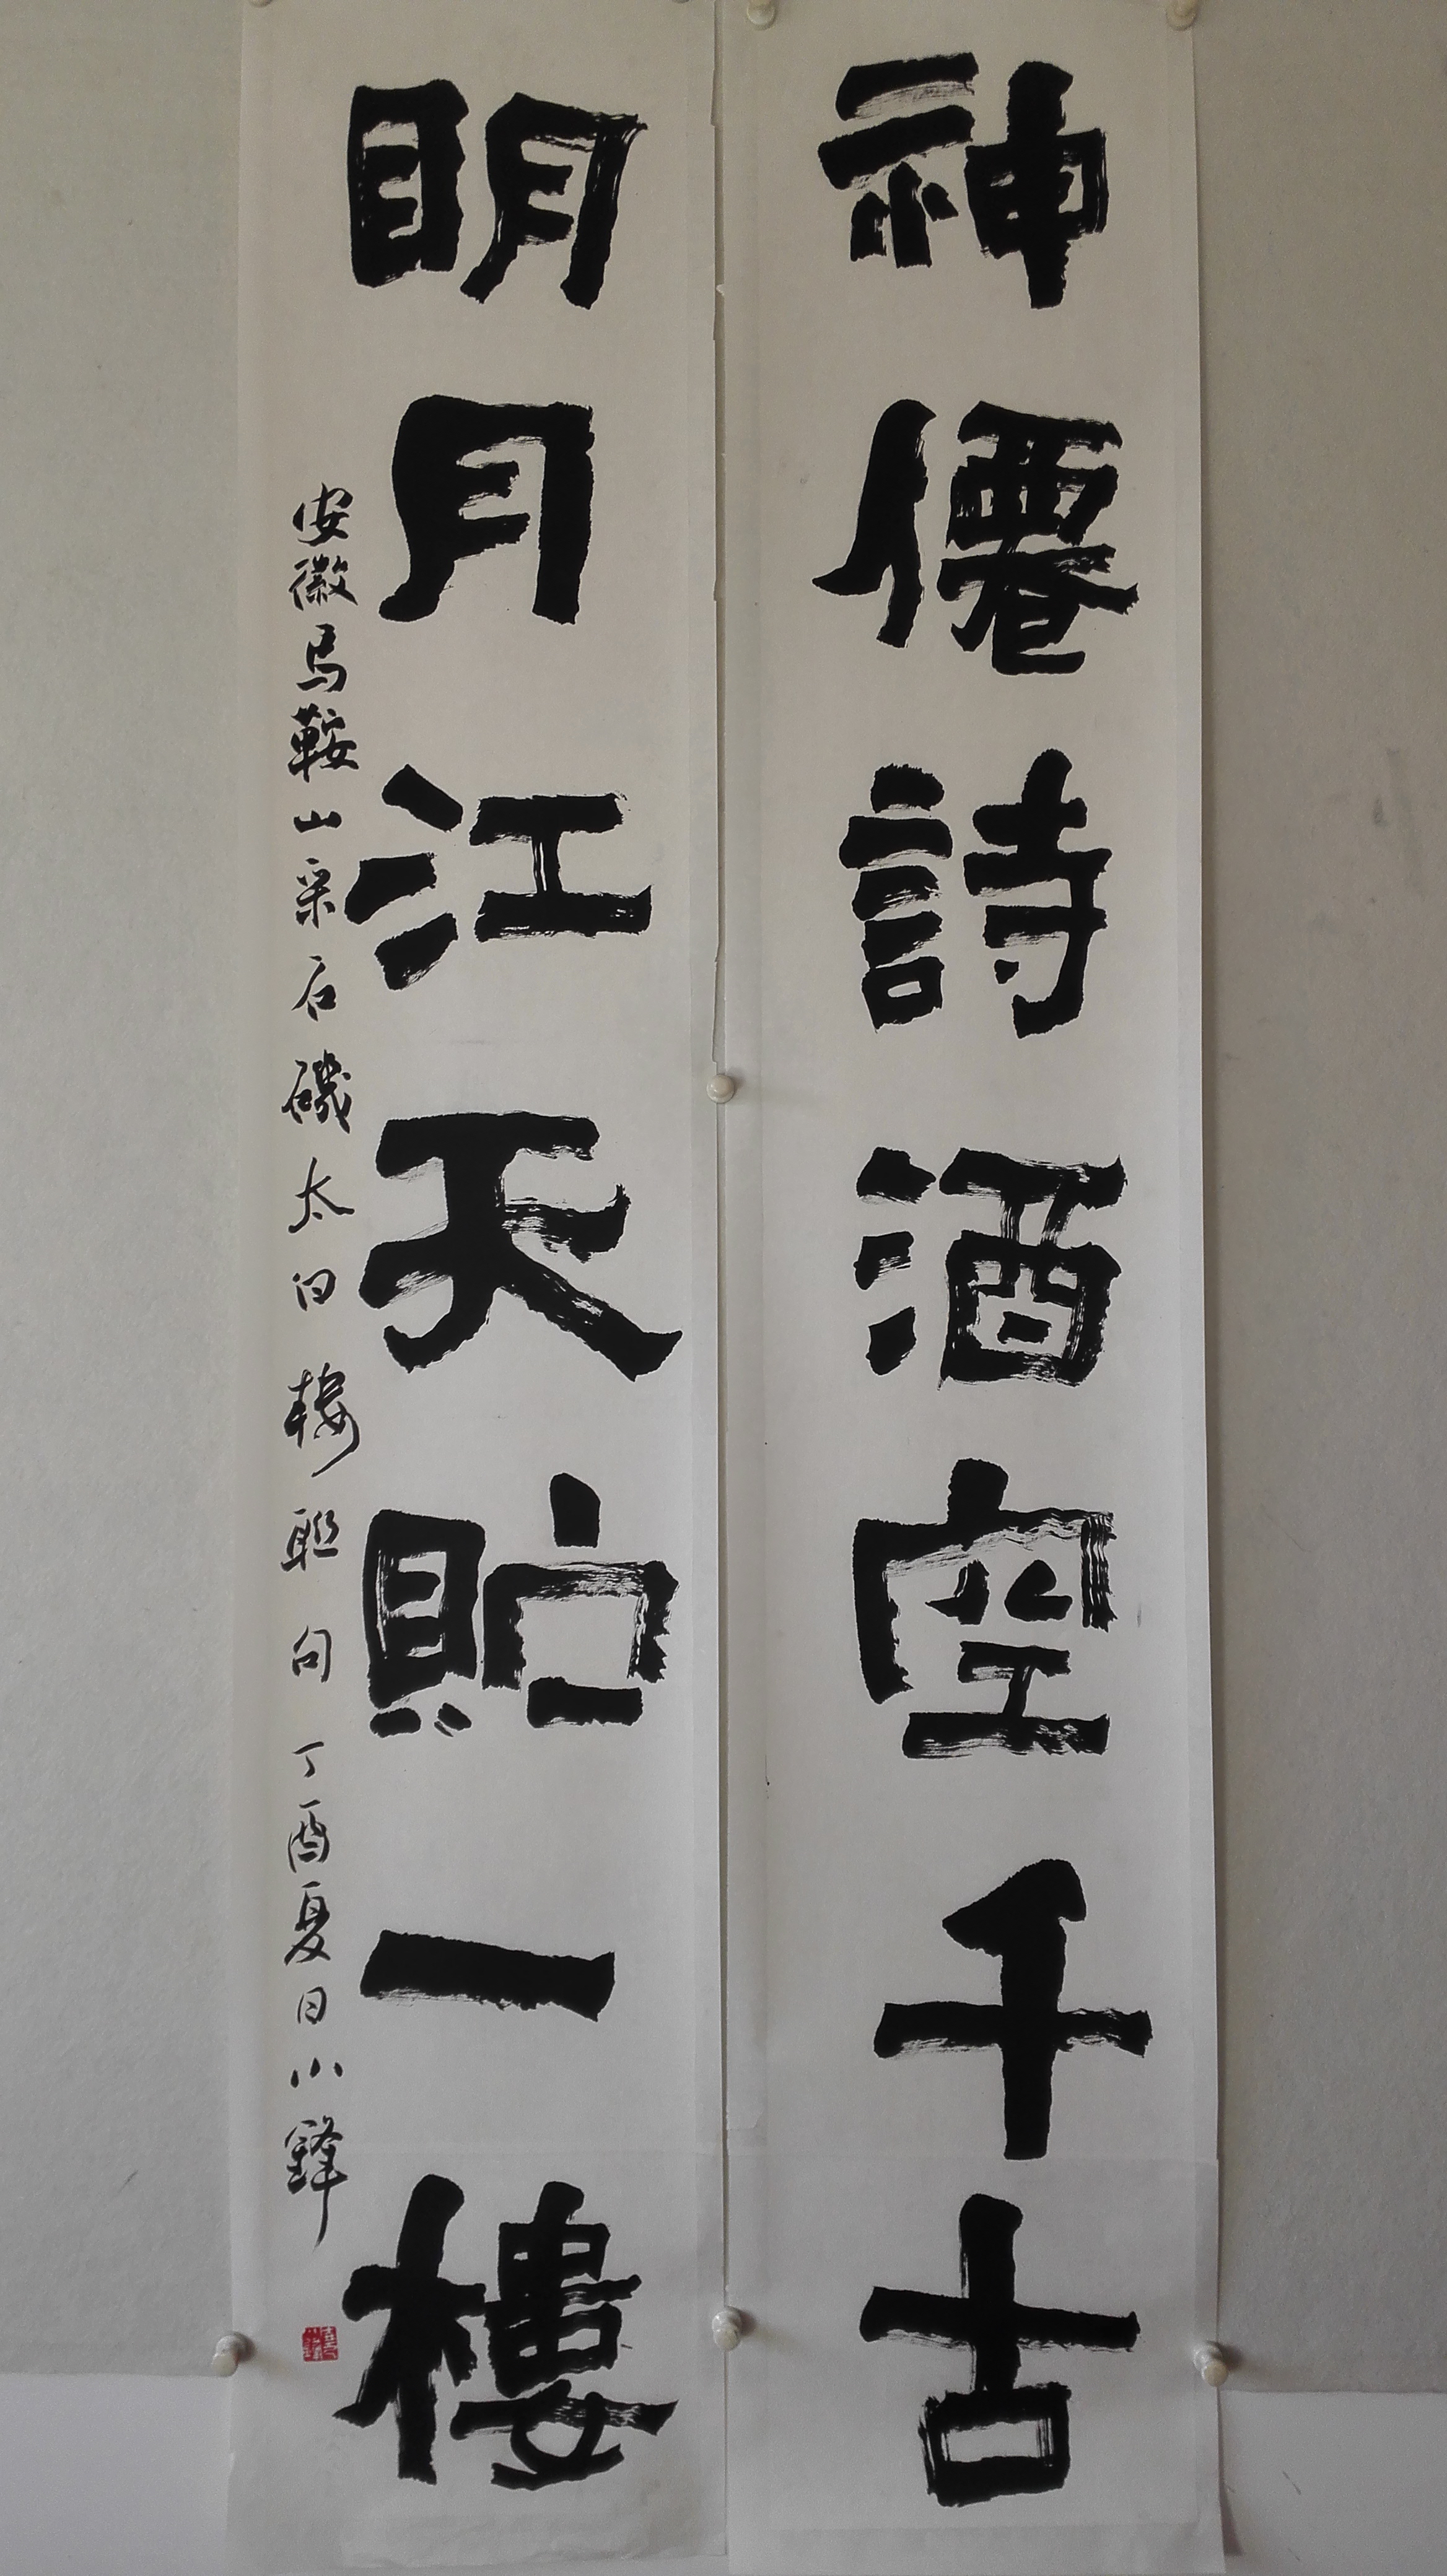 神僊詩酒空千古
明月江天貯一樓
安徽马鞍山采石磯太白樓聯句 丁酉夏日小鋒